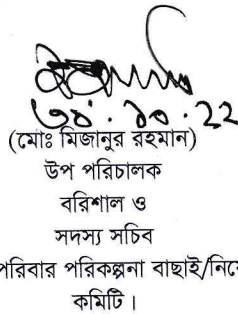 ৩০.১০.২২
(মোঃ মিজানুর রহমান)
উপ পরিচালক
বরিশাল ও
সদস্য সচিব
পরিবার পরিকল্পনা বাছাই/
কমিটি।